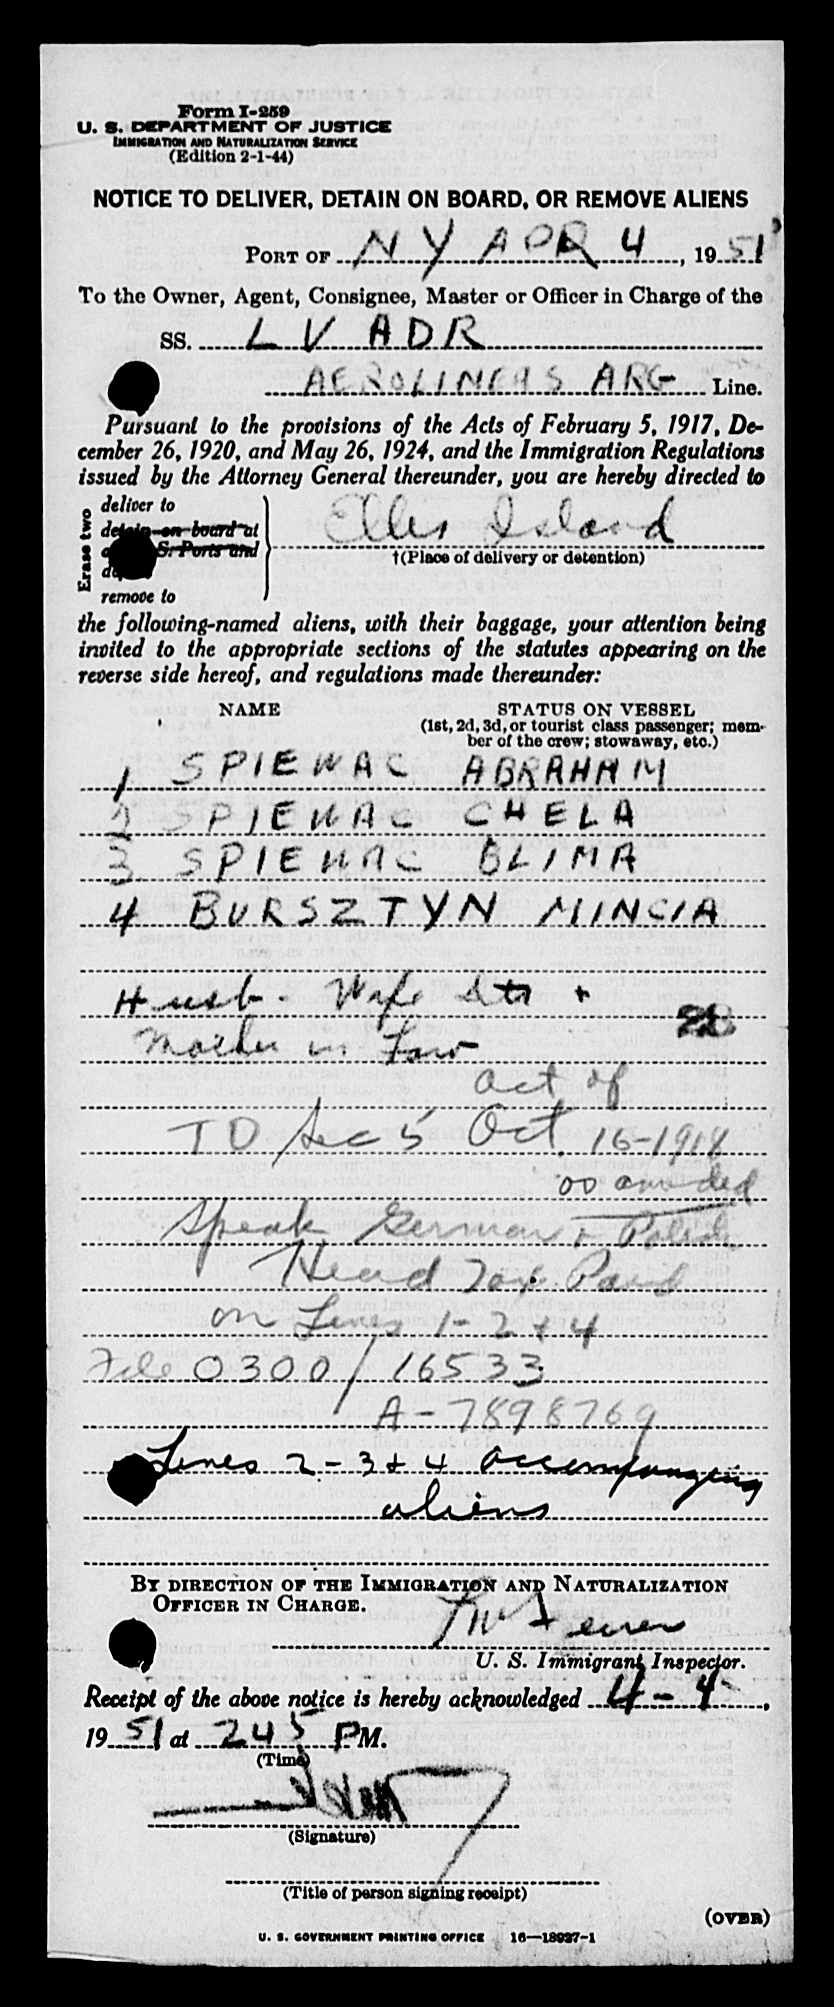 Form I-259
U. S. DEPARTMENT OF JUSTICE
IMMIGRATION AND NATURALIZATION SERVICE
(Edition 2-1-44)
NOTICE TO DELIVER, DETAIN ON BOARD, OR REMOVE ALIENS
PORT OF N Y APR 4, 1951
To the Owner, Agent, Consignee, Master or Officer in Charge of the
SS. L V ADR
AEROLINEAS ARG Line.
Pursuant to the provisions of the Acts of February 5, 1917, De-
cember 26, 1920, and May 26, 1924, and the Immigration Regulations
issued by the Attorney General thereunder, you are hereby directed to
Erase two
deliver to
detain on board at
S. Ports and
remove to
Ellis Island
†(Place of delivery or detention)
the following-named aliens, with their baggage, your attention being
invited to the appropriate sections of the statutes appearing on the
reverse side hereof, and regulations made thereunder:
NAME STATUS ON VESSEL
(1st, 2d, 3d, or tourist class passenger; mem-
ber of the crew; stowaway, etc.)
1 SPIEWAC ABRAHAM
2 SPIEWAC CHELA
3 SPIEWAC BLIMA
4 BURSZTYN MINCIA
Husb. Wife Dtr +
Mother in Law
act of
TD Sec 5 Oct. 16-1918
as amended
Speak German + Polish
Head Tax Paid
on Lines 1-2+4
File 0300/16533
A-7898769
Lines 2-3+4 accompanying
aliens
BY DIRECTION OF THE IMMIGRATION AND NATURALIZATION
OFFICER IN CHARGE.
U. S. Immigrant Inspector.
Receipt of the above notice is hereby acknowledged 4-4,
1951 at 245 PM.
(Time)
(Signature)
(Title of person signing receipt)
(OVER)
U. S. GOVERNMENT PRINTING OFFICE 16—18927-1